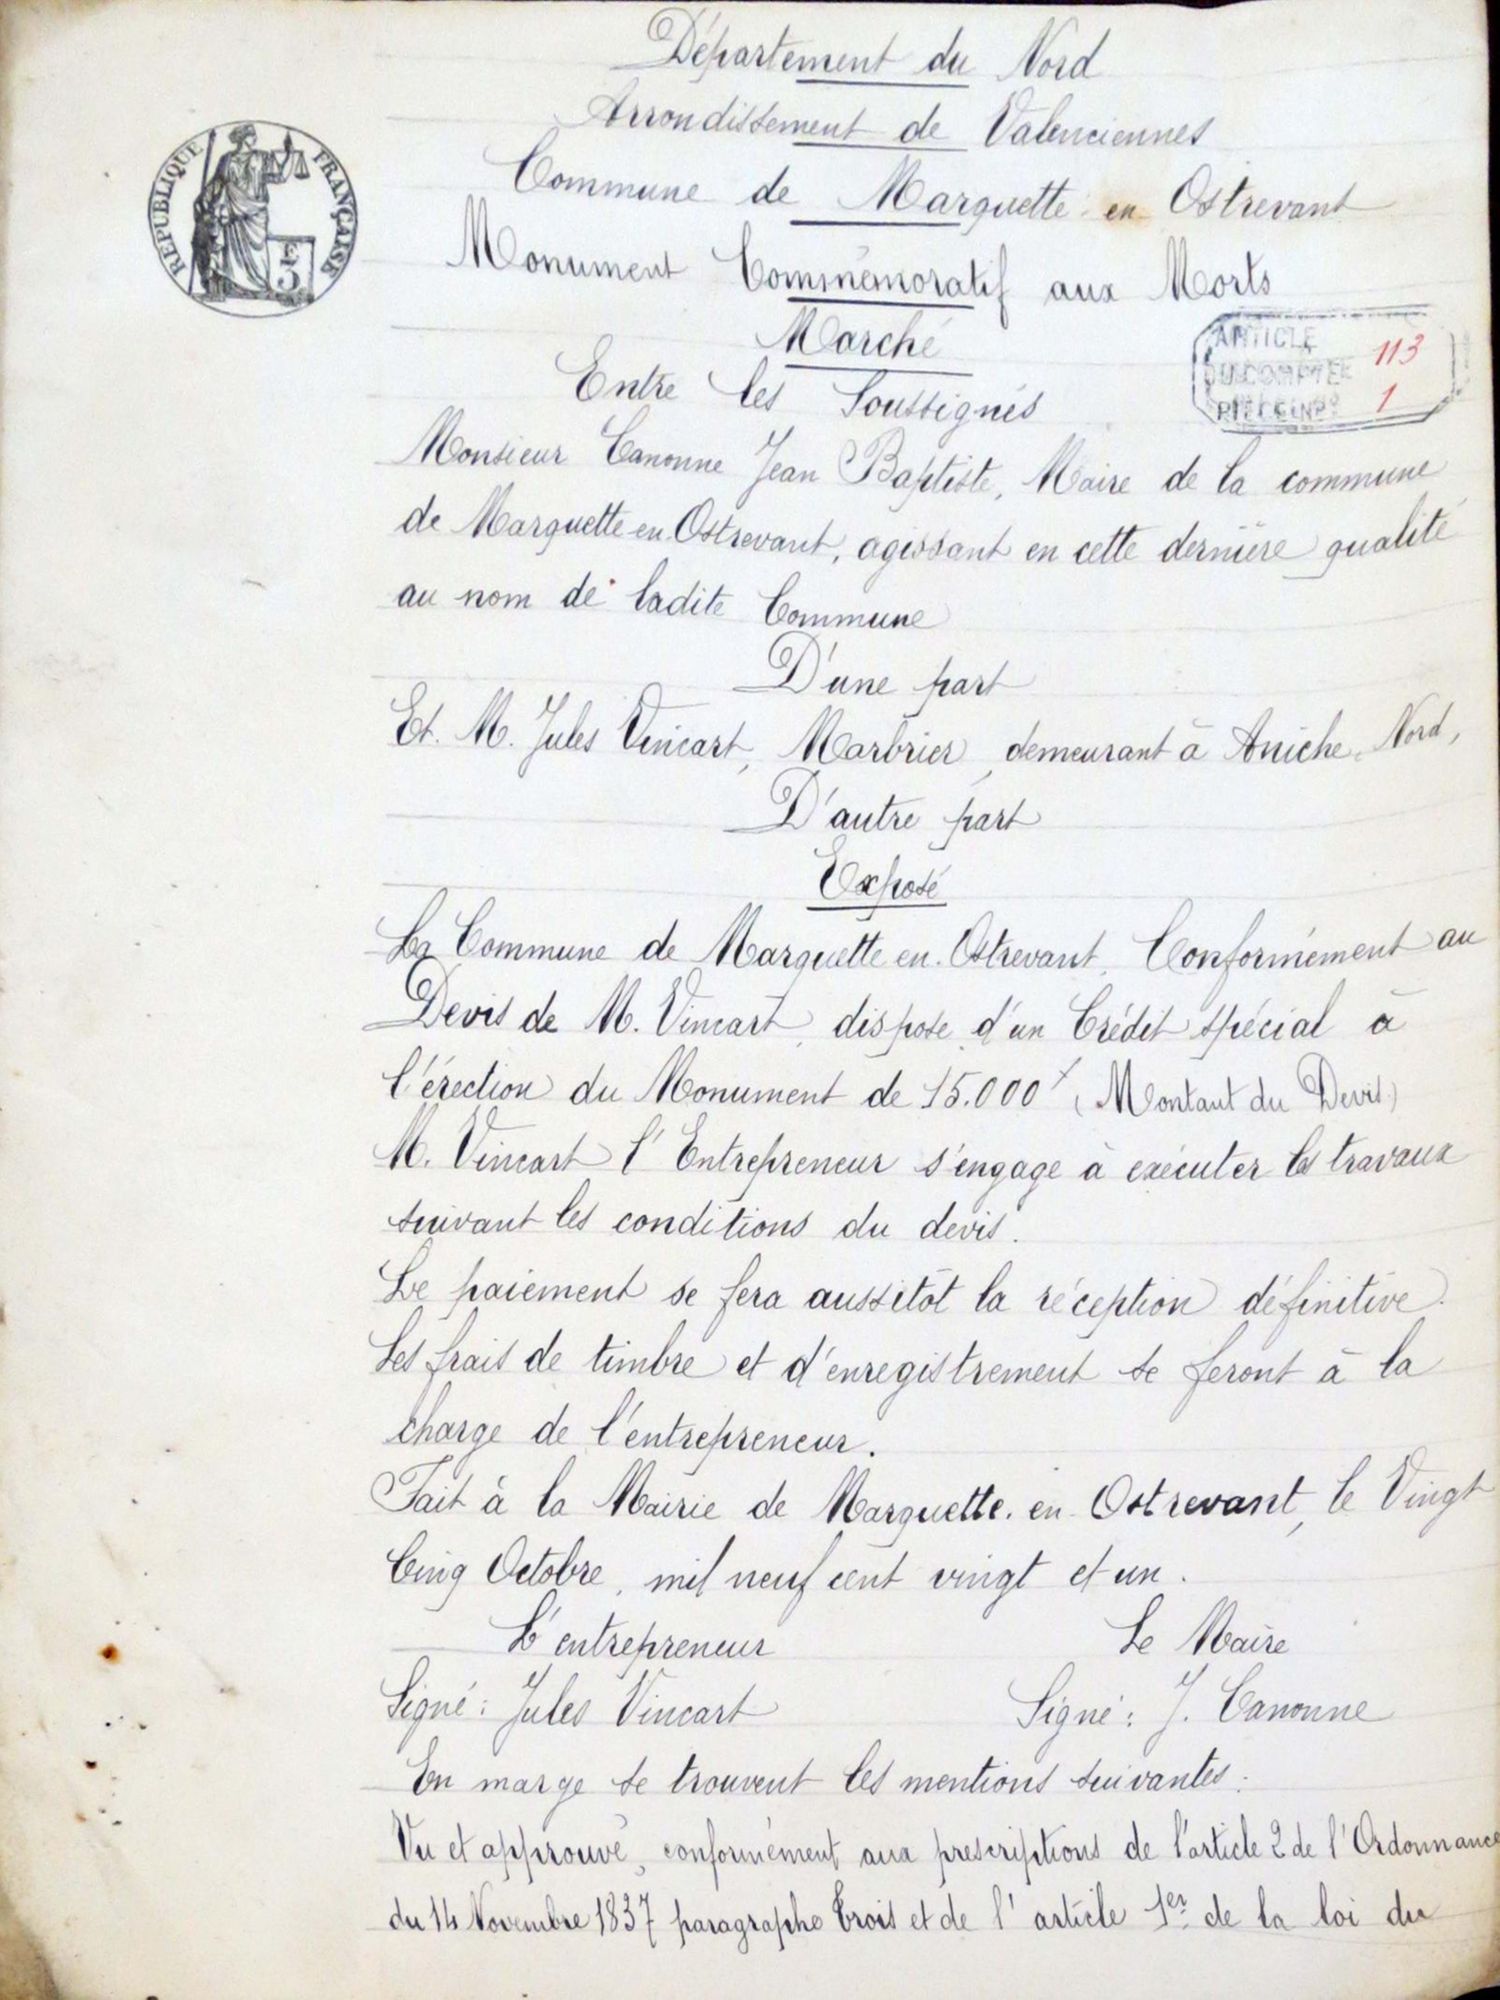 Département du Nord
Arrondissement de Valenciennes
Commune de Marquette en Ostrevant
RÉPUBLIQUE FRANÇAISE
3
Monument Commémoratif aux Morts
Marché
ARTICLE 113
DU COMPTE
PIECE N° 1
Entre les Soussignés
Monsieur Canonne Jean Baptiste, Maire de la commune
de Marquette en Ostrevant, agissant en cette dernière qualité
au nom de ladite Commune
D'une part
Et M. Jules Vincart, Marbrier, demeurant à Aniche, Nord,
D'autre part
Exposé
La Commune de Marquette en Ostrevant, Conformément au
Devis de M. Vincart, dispose d'un Crédit spécial à
l'érection du Monument de 15.000f (Montant du Devis)
M. Vincart l'Entrepreneur s'engage à exécuter les travaux
suivant les conditions du devis.
Le paiement se fera aussitôt la réception définitive.
Les frais de timbre et d'enregistrement se feront à la
charge de l'entrepreneur.
Fait à la Mairie de Marquette en Ostrevant, le Vingt
Cinq Octobre, mil neuf cent vingt et un.
L'entrepreneur Le Maire
Signé : Jules Vincart Signé : J. Canonne
En marge se trouvent les mentions suivantes :
Vu et approuvé, conformément aux prescriptions de l'article 2 de l'Ordonnance
du 14 Novembre 1837 paragraphe Trois et de l'article 1er de la loi du